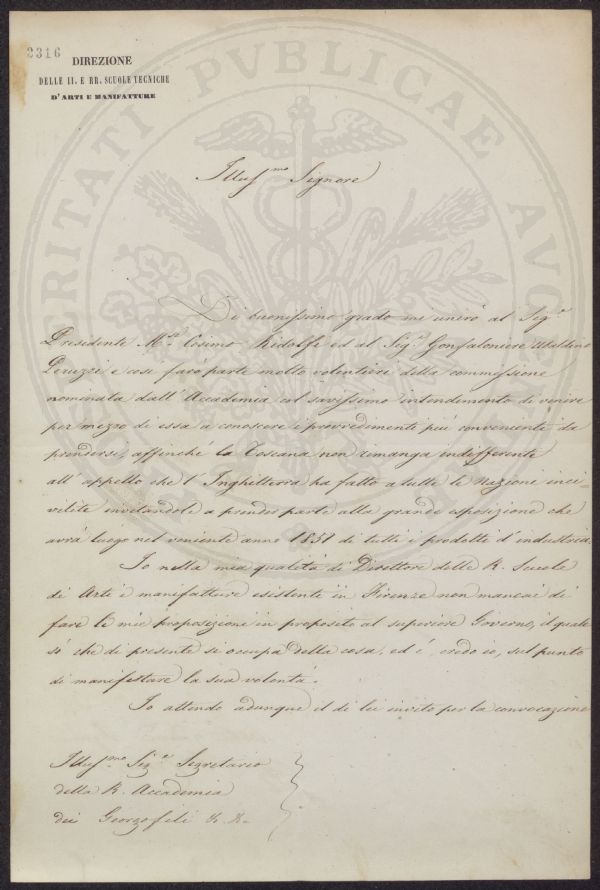 2316
DIREZIONE
DELLE II. E RR. SCUOLE TECNICHE
D'ARTI E MANIFATTURE
PROSPERITATI PVBLICAE AVGENDAE
Illus.mo Signore
Di buonissimo grado me unirò al Sig.r
Presidente M.se Cosimo Ridolfi ed al Sig.r Gonfaloniere Ubaldino
Peruzzi e così farò parte molto volentieri della commissione
nominata dall'Accademia col savissimo intendimento di venire
per mezzo di essa a conoscere i provvedimenti più convenienti da
prendersi, affinché la Toscana non rimanga indifferente
all'appello che l'Inghilterra ha fatto a tutte le Nazioni inci-
vilite invitandole a prender parte alla grande esposizione che
avrà luogo nel veniente anno 1851 di tutti i prodotti d'industria.
Io nella mia qualità di Direttore delle R. Scuole
di Arti e manifatture esistente in Firenze non mancai di
fare le mie proposizioni in proposito al superiore Governo, il quale
sì che di presente si occupa della cosa, ed è, credo io, sul punto
di manifestare la sua volontà.
Io attendo adunque il di lei invito per la convocazione
Illus.mo Sig.e Segretario
della R. Accademia
dei Georgofili &. &.